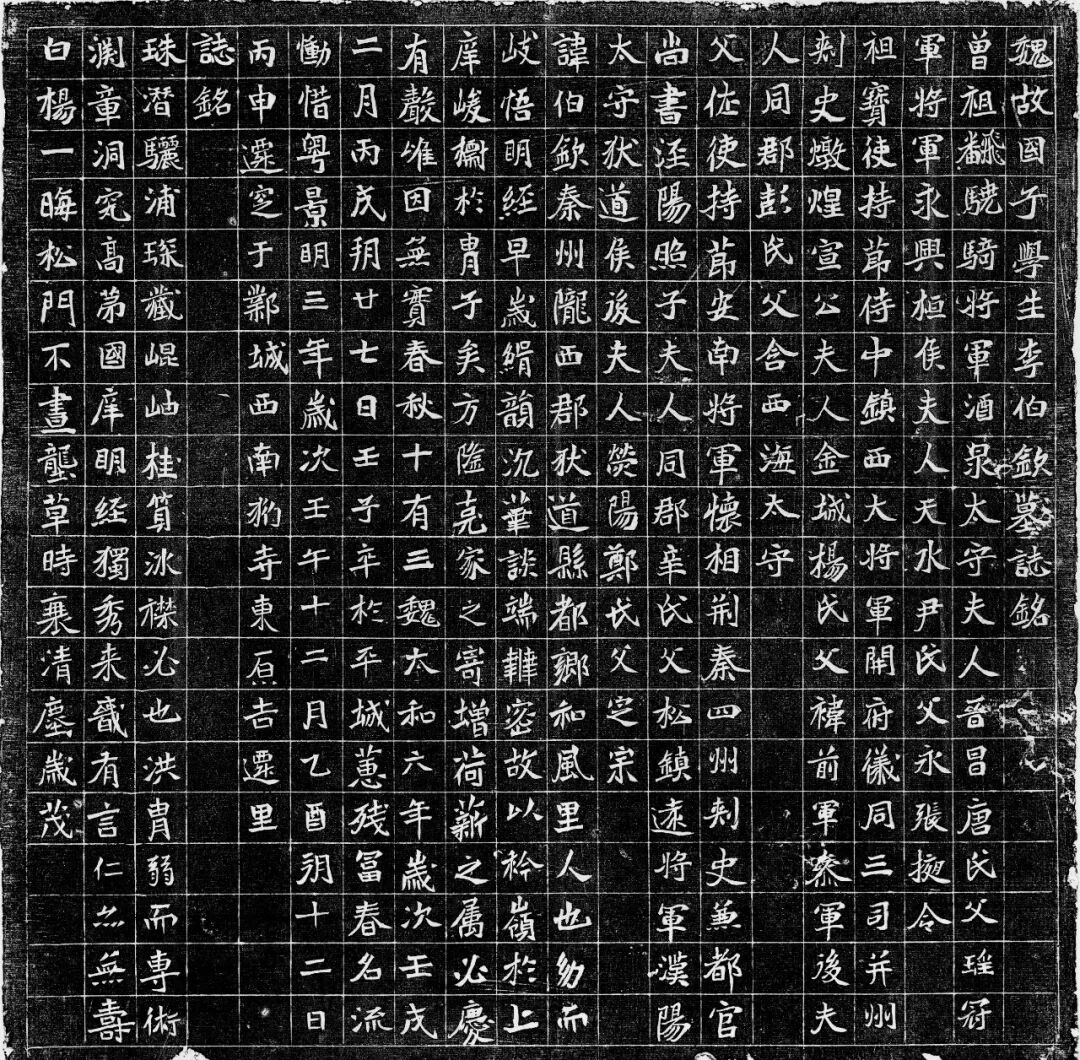 魏故國子學生李伯欽墓誌銘
曾祖翻驍騎將軍酒泉太守夫人晉昌唐氏父瑶冠
軍將軍永興桓侯夫人天水尹氏父永張掖令
祖寶使持節侍中鎮西大將軍開府儀同三司并州
刺史燉煌宣公夫人金城楊氏父禕前軍叅軍後夫
人同郡彭氏父含西海太守
父佐使持節安南將軍懷相荊秦四州刺史兼都官
尚書涇陽照子夫人同郡辛氏父松鎮遠將軍漢陽
太守狄道侯後夫人滎陽鄭氏父定宗
諱伯欽秦州隴西郡狄道縣都鄉和風里人也幼而
岐悟明經早歲緝韻沉華談端韡密故以衿嶺於上
庠峻櫛於胄子矣方隆克家之寄增荷薪之属必慶
有聲唯因無實春秋十有三魏太和六年歲次壬戌
二月丙戌朔廿七日壬子卒於平城蕙殘冨春名流
慟惜粤景明三年歲次壬午十二月乙酉朔十二日
丙申遷窆于鄴城西南豹寺東原吉遷里
誌銘
珠潛驪浦琛藏崐岫桂質冰襟必也洪胄弱而專術
渊章洞究高第國庠明經獨秀来彀有言仁亦無壽
白楊一晦松門不晝壟草時襄清塵歲茂